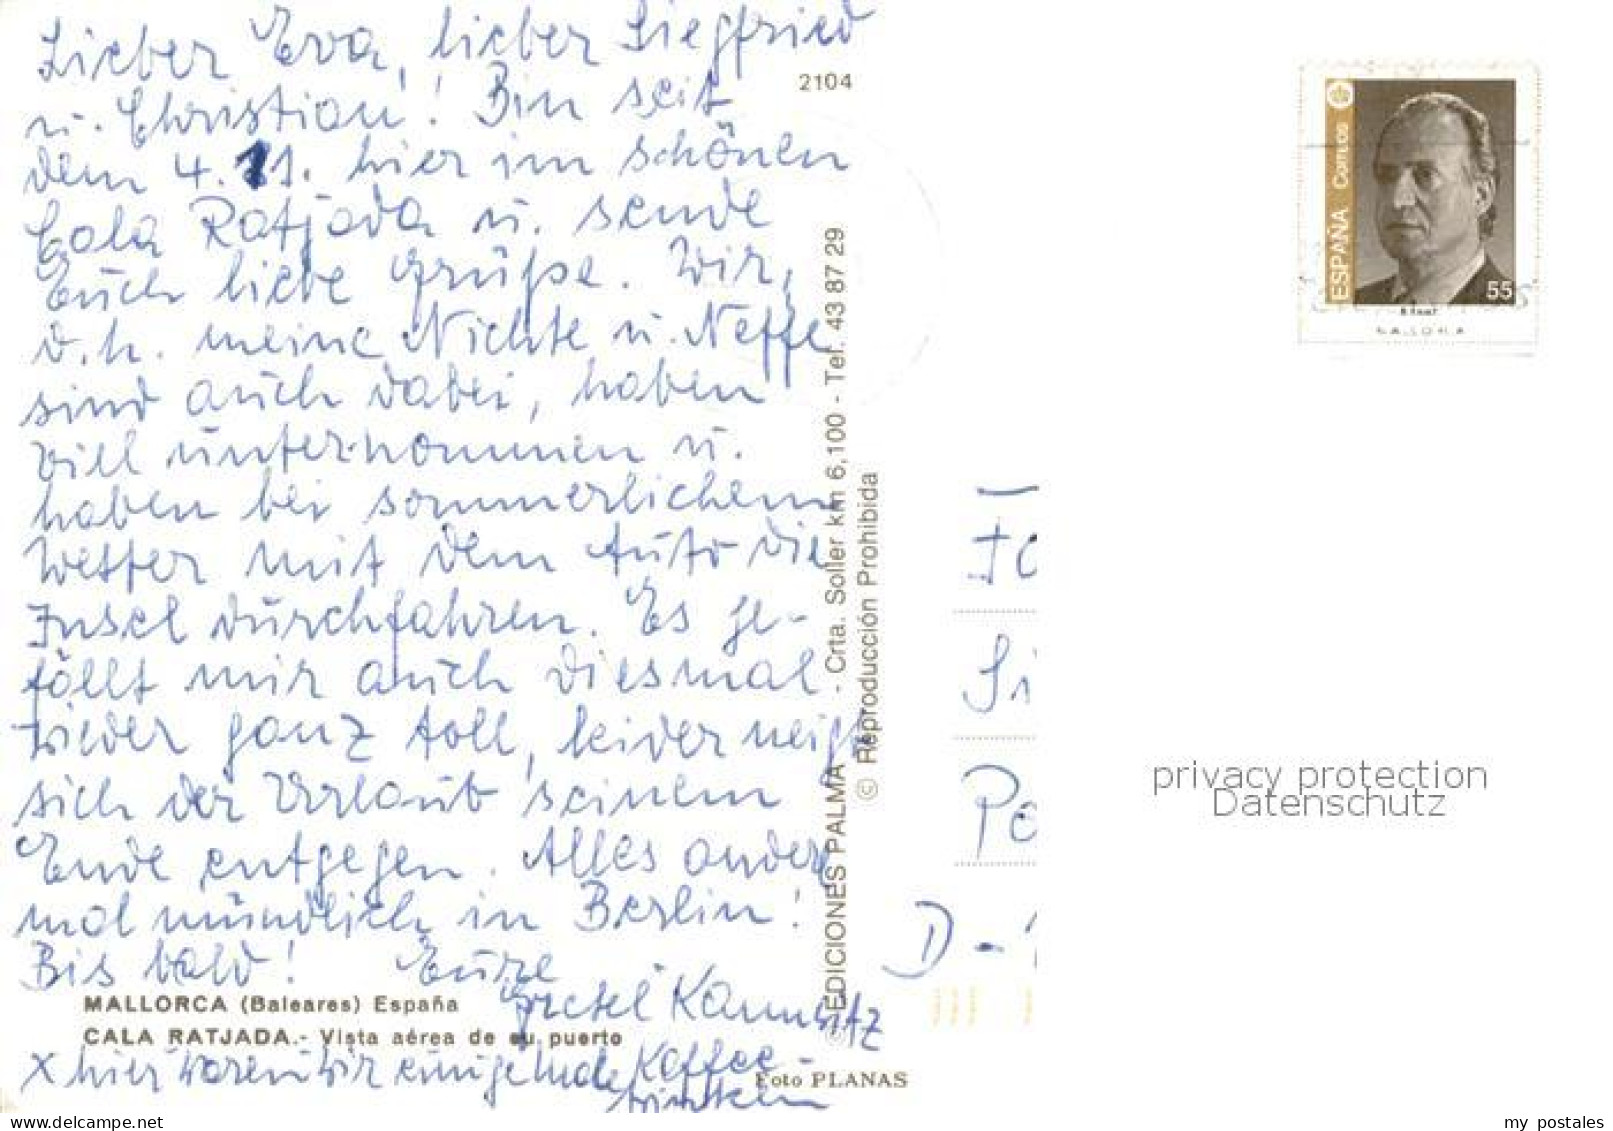 Lieber Eva, lieber Siegfried
u. Christian! Bin seit
dem 4. 11. hier im schönen
Cala Ratjada u. sende
Euch liebe Grüße. Wir,
d.h. meine Nichte u. Neffe
sind auch dabei, haben
viel unternommen u.
haben bei sommerlichem
Wetter mit dem Auto die
Insel durchfahren. Es ge-
fällt mir auch diesmal
wieder ganz toll, leider neigt
sich der Urlaub seinem
Ende entgegen. Alles andere
mal mündlich in Berlin!
Bis bald! Eure
Gretel
MALLORCA (Baleares) España
CALA RATJADA.- Vista aérea de su puerto
x hier waren wir einige Male Kaffee
trinken
Foto PLANAS
2104
EDICIONES PALMA - Crta. Soller km 6,100 - Tel. 43 87 29
© Reproducción Prohibida
ESPAÑA Correos
55
MALLORCA
Si
D -
privacy protection
Datenschutz
delcampe.net
my_postales